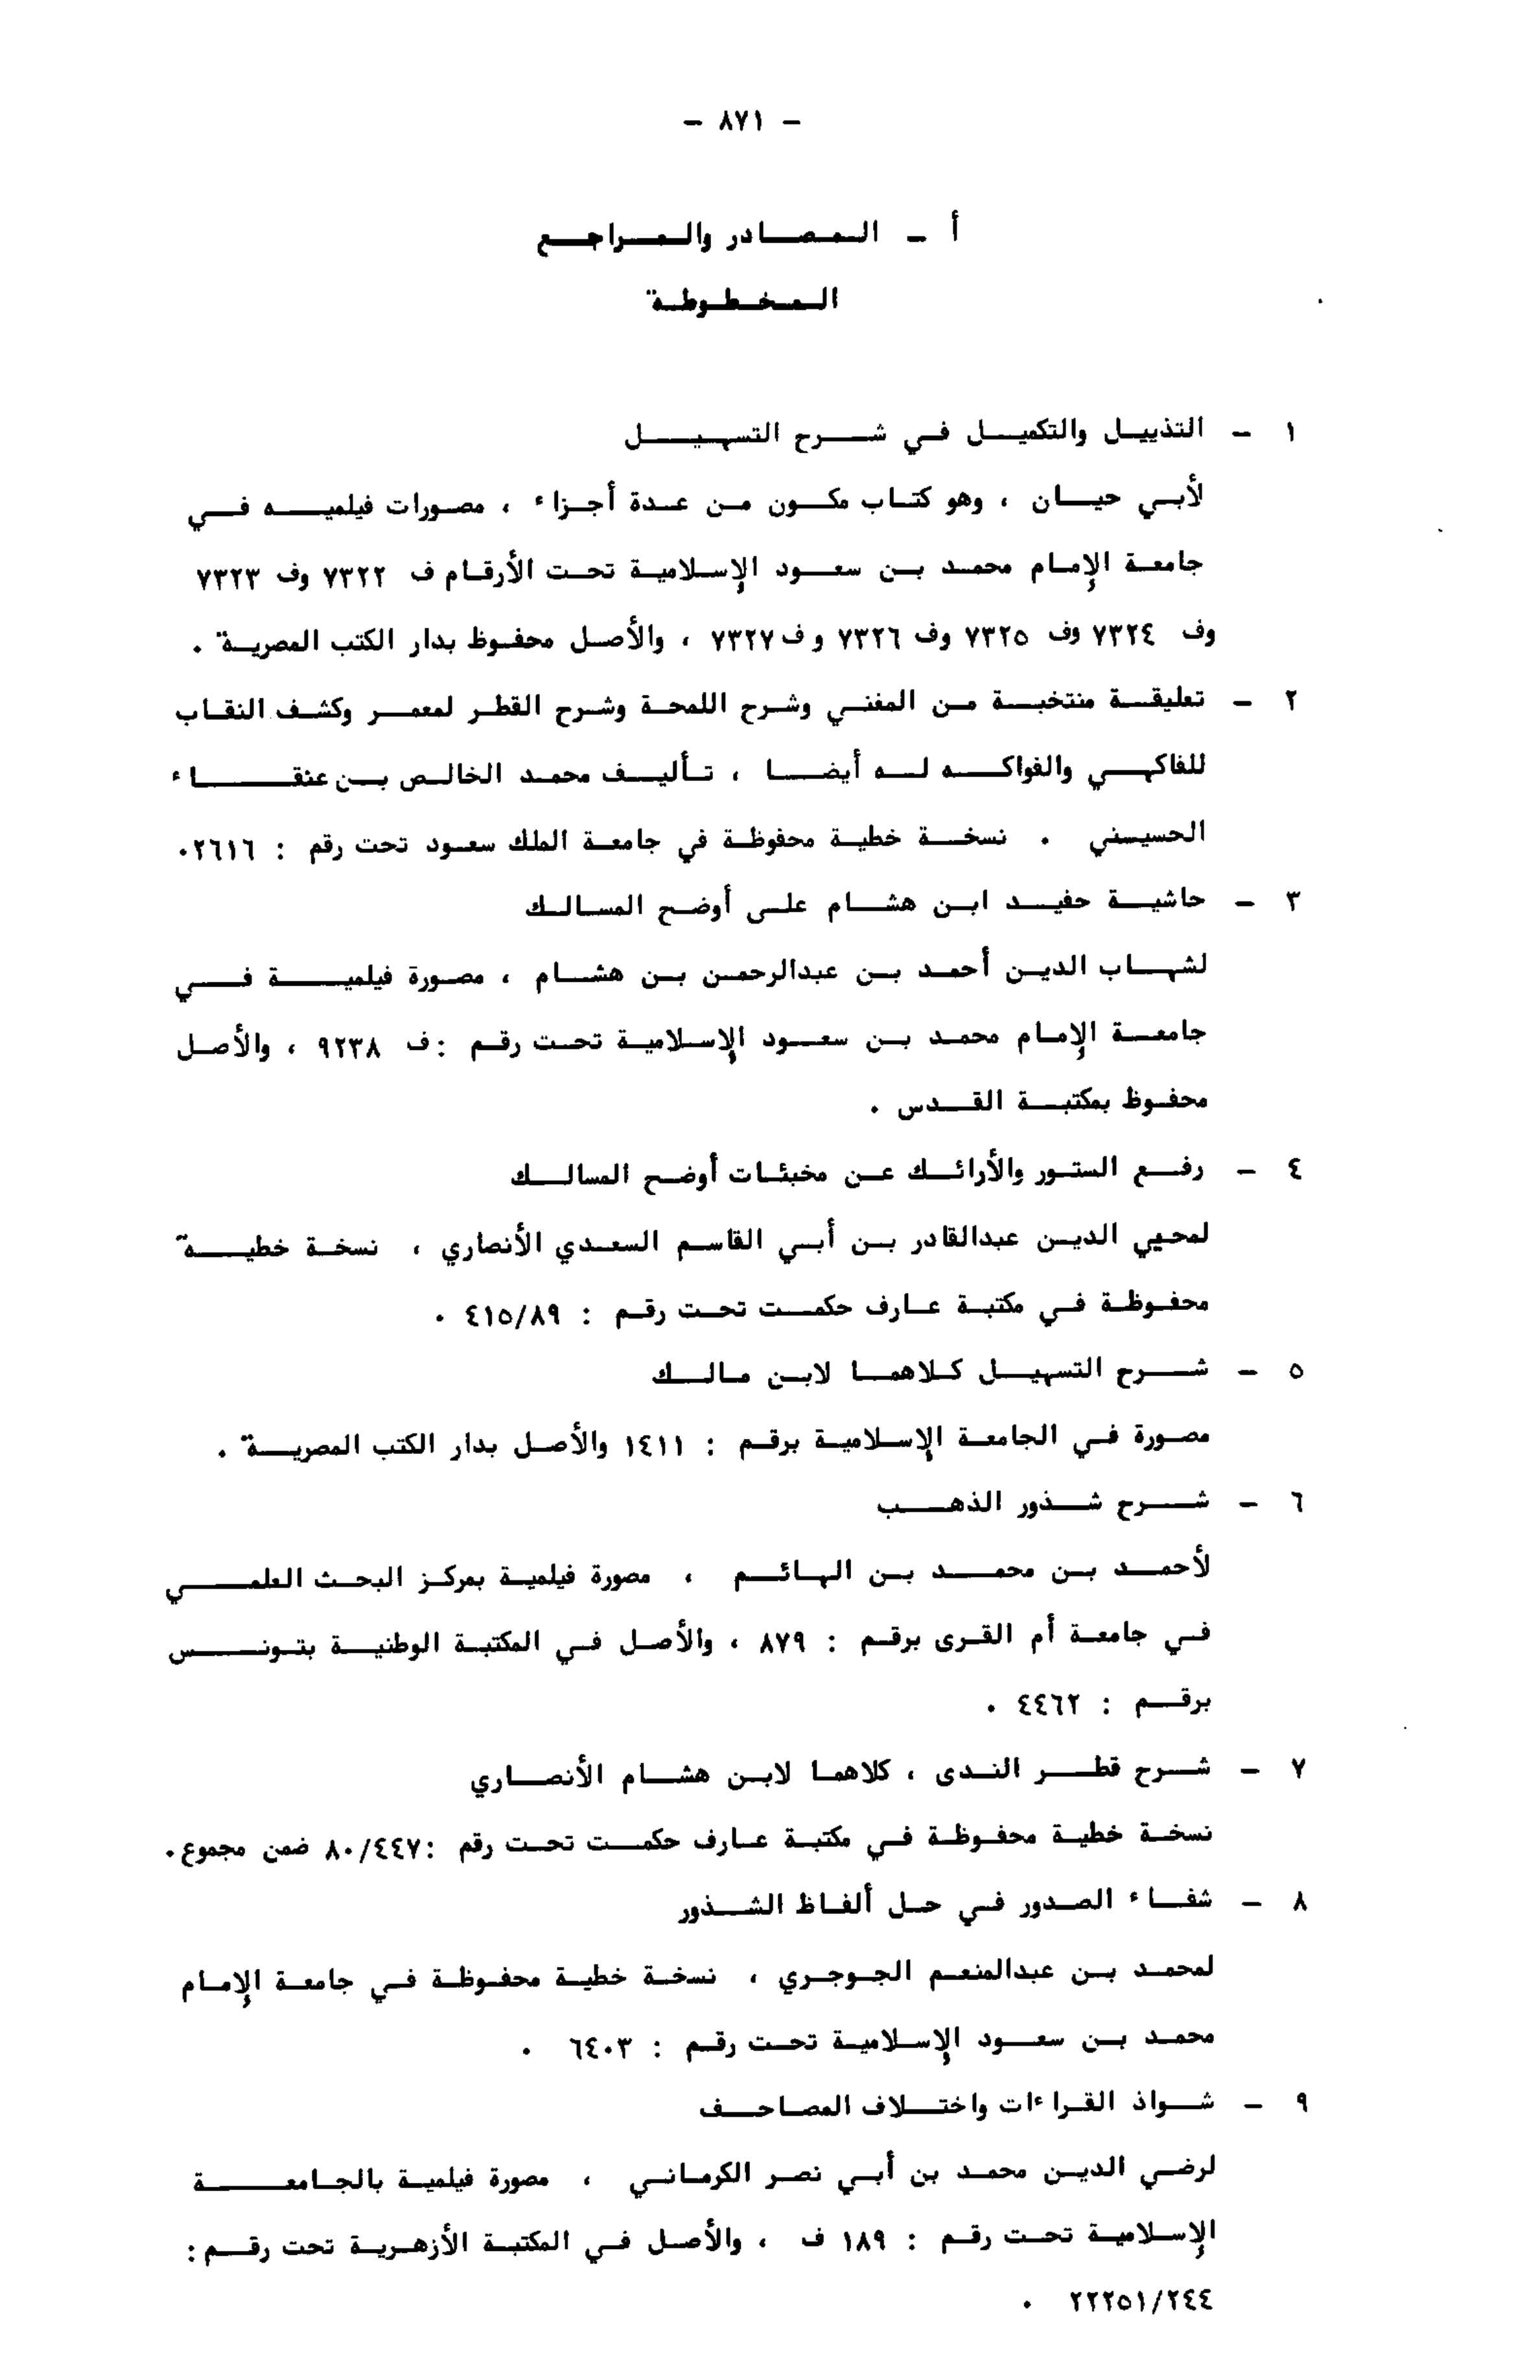 - ٨٧١ -
أ - المصادر والمراجع
المخطوطة
١ - التذييل والتكميل في شرح التسهيل
لأبي حيان ، وهو كتاب مكون من عدة أجزاء ، مصورات فيلميه في
جامعة الإمام محمد بن سعود الإسلامية تحت الأرقام ف ٧٣٢٢ وف ٧٣٢٣
وف ٧٣٢٤ وف ٧٣٢٥ وف ٧٣٢٦ وف ٧٣٢٧ ، والأصل محفوظ بدار الكتب المصرية .
٢ - تعليقة منتخبة من المغني وشرح اللمحة وشرح القطر لمعمر وكشف النقاب
للفاكهي والفواكه له أيضا ، تأليف محمد الخالص بن عنقاء
الحسيسني . نسخة خطية محفوظة في جامعة الملك سعود تحت رقم : ٢٦١٦.
٣ - حاشية حفيد ابن هشام على أوضح المسالك
لشهاب الدين أحمد بن عبدالرحمن بن هشام ، مصورة فيلمية في
جامعة الإمام محمد بن سعود الإسلامية تحت رقم : ف ٩٢٣٨ ، والأصل
محفوظ بمكتبة القدس .
٤ - رفع الستور والأرائك عن مخبئات أوضح المسالك
لمحيي الدين عبدالقادر بن أبي القاسم السعدي الأنصاري ، نسخة خطية
محفوظة في مكتبة عارف حكمت تحت رقم : ٤١٥/٨٩ .
٥ - شرح التسهيل كلاهما لابن مالك
مصورة في الجامعة الإسلامية برقم : ١٤١١ والأصل بدار الكتب المصرية .
٦ - شرح شذور الذهب
لأحمد بن محمد بن الهائم ، مصورة فيلمية بمركز البحث العلمي
في جامعة أم القرى برقم : ٨٧٩ ، والأصل في المكتبة الوطنية بتونس
برقم : ٤٤٦٢ .
٧ - شرح قطر الندى ، كلاهما لابن هشام الأنصاري
نسخة خطية محفوظة في مكتبة عارف حكمت تحت رقم : ٨٠/٤٤٧ ضمن مجموع.
٨ - شفاء الصدور في حل ألفاظ الشذور
لمحمد بن عبدالمنعم الجوجري ، نسخة خطية محفوظة في جامعة الإمام
محمد بن سعود الإسلامية تحت رقم : ٦٤٠٣ .
٩ - شواذ القراءات واختلاف المصاحف
لرضي الدين محمد بن أبي نصر الكرماني ، مصورة فيلمية بالجامعة
الإسلامية تحت رقم : ١٨٩ ف ، والأصل في المكتبة الأزهرية تحت رقم :
٢٢٢٥١/٢٤٤ .